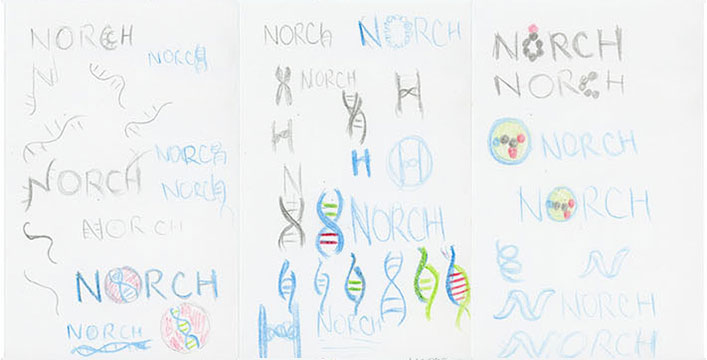 NORCH
NORCH
NORCH
NORCH
NORCH
NORCH
NORCH
NORCH
NORCH
NORCH
NORCH
H
N
NORCH
NORCH
NORCH
NORCH
NORCH
NORCH
NORCH
NORCH